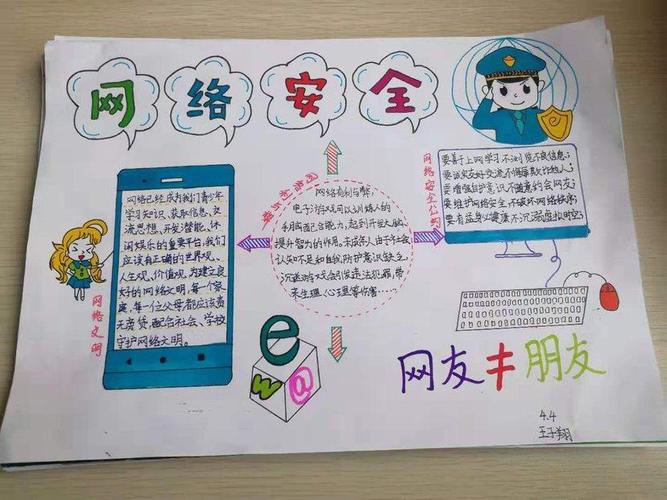 网络安全
网络已经成为我们青少年
学习知识、获取信息、交
流思想、开发潜能、休
闲娱乐的重要平台,我们
应该有正确的世界观、
人生观、价值观,为建立良
好的网络文明,每个家
庭,每一位父母都应该责
无旁贷,配合社会、学校
守护网络文明。
网络文明
网络利与弊
网络有利与弊,
电子游戏可以训练人的
手脑配合能力,起到开发大脑,
提升智力的作用。未成年人由于年社会
认知不足和自我防护意识缺乏
沉迷游戏会引诱违法犯罪,带
来生理、心理等伤害……
网络安全公约
要善于上网学习 不浏览不良信息;
要诚实友好交流 不侮辱欺诈他人;
要增强自护意识 不随意约会网友;
要维护网络安全 不破坏网络秩序;
要有益身心健康 不沉溺虚拟时空;
e
w
@
网友≠朋友
4.4
王子翔